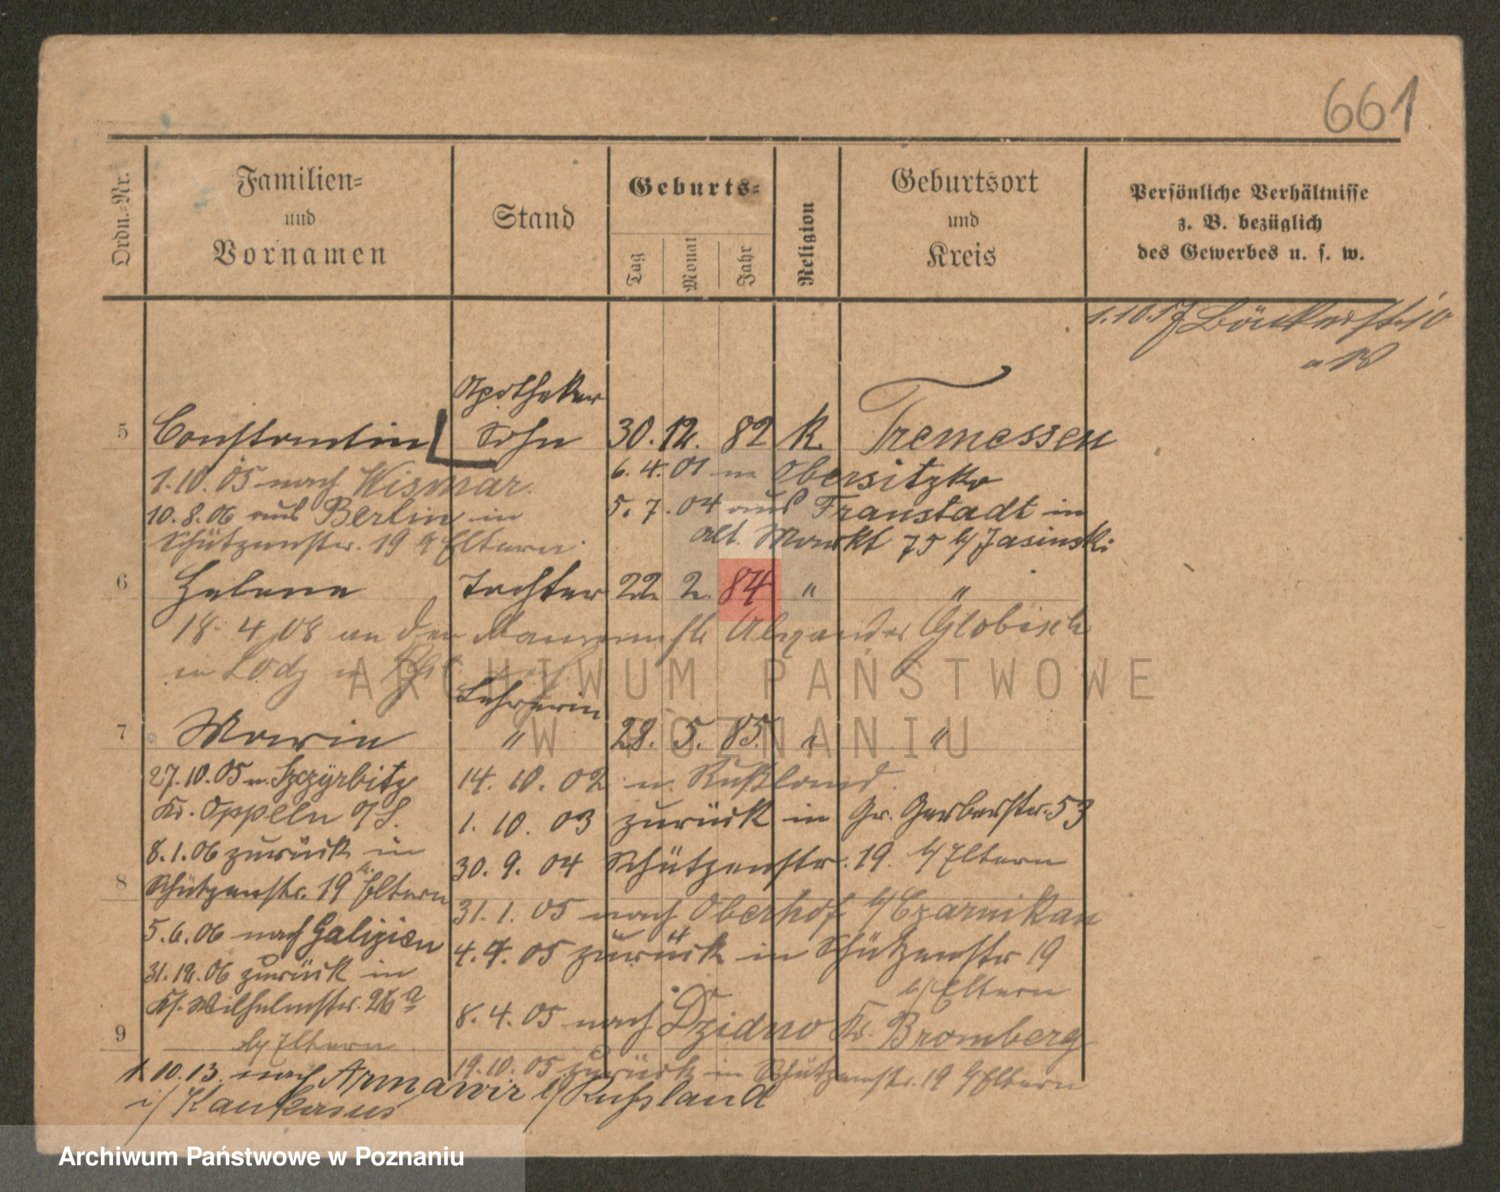 661
Ordn.-Nr.
Familien-
und
Vornamen
Stand
Geburts-
Tag
Monat
Jahr
Religion
Geburtsort
und
Kreis
Persönliche Verhältnisse
z. B. bezüglich
des Gewerbes u. s. w.
Apotheker
5 Constantin Sohn 30. 12. 82 k. Tremessen
1.10.05 nach Wismar.
6.4.01 n. Obersitzko
10.8.06 aus Berlin in
5.7.04 aus Fraustadt in
Schützenstr. 19 b/Eltern.
Alt. Markt 75 b/Jasinski
6 Helene Tochter 22. 2. 84 " "
18.4.08 an den Alexander Globisch
in Lodz
Lehrerin
7 Marie " 28. 5. 85. " "
27.10.05 n. Szczyrbitz
Kr. Oppeln O/S.
8.1.06 zurück in
8 Schützenstr. 19 b. Eltern
5.6.06 nach Galizien
31.12.06 zurück in
Kl. Wilhelmstr. 26a
9 b/Eltern
14.10.02 n. Rußland.
1.10.03 zurück in Gr. Gerberstr. 53
30.9.04 Schützenstr. 19. b/Eltern
31.1.05 nach Oberhof b/Czarnikau
4.4.05 zurück in Schützenstr 19
b/Eltern
8.4.05 nach Dzidno Kr. Bromberg
19.10.05 zurück in Schützenstr. 19 b/Eltern
1.10.13. nach Armawir b/Russland
i/Kaukasus
ARCHIWUM PAŃSTWOWE
W POZNANIU
Archiwum Państwowe w Poznaniu